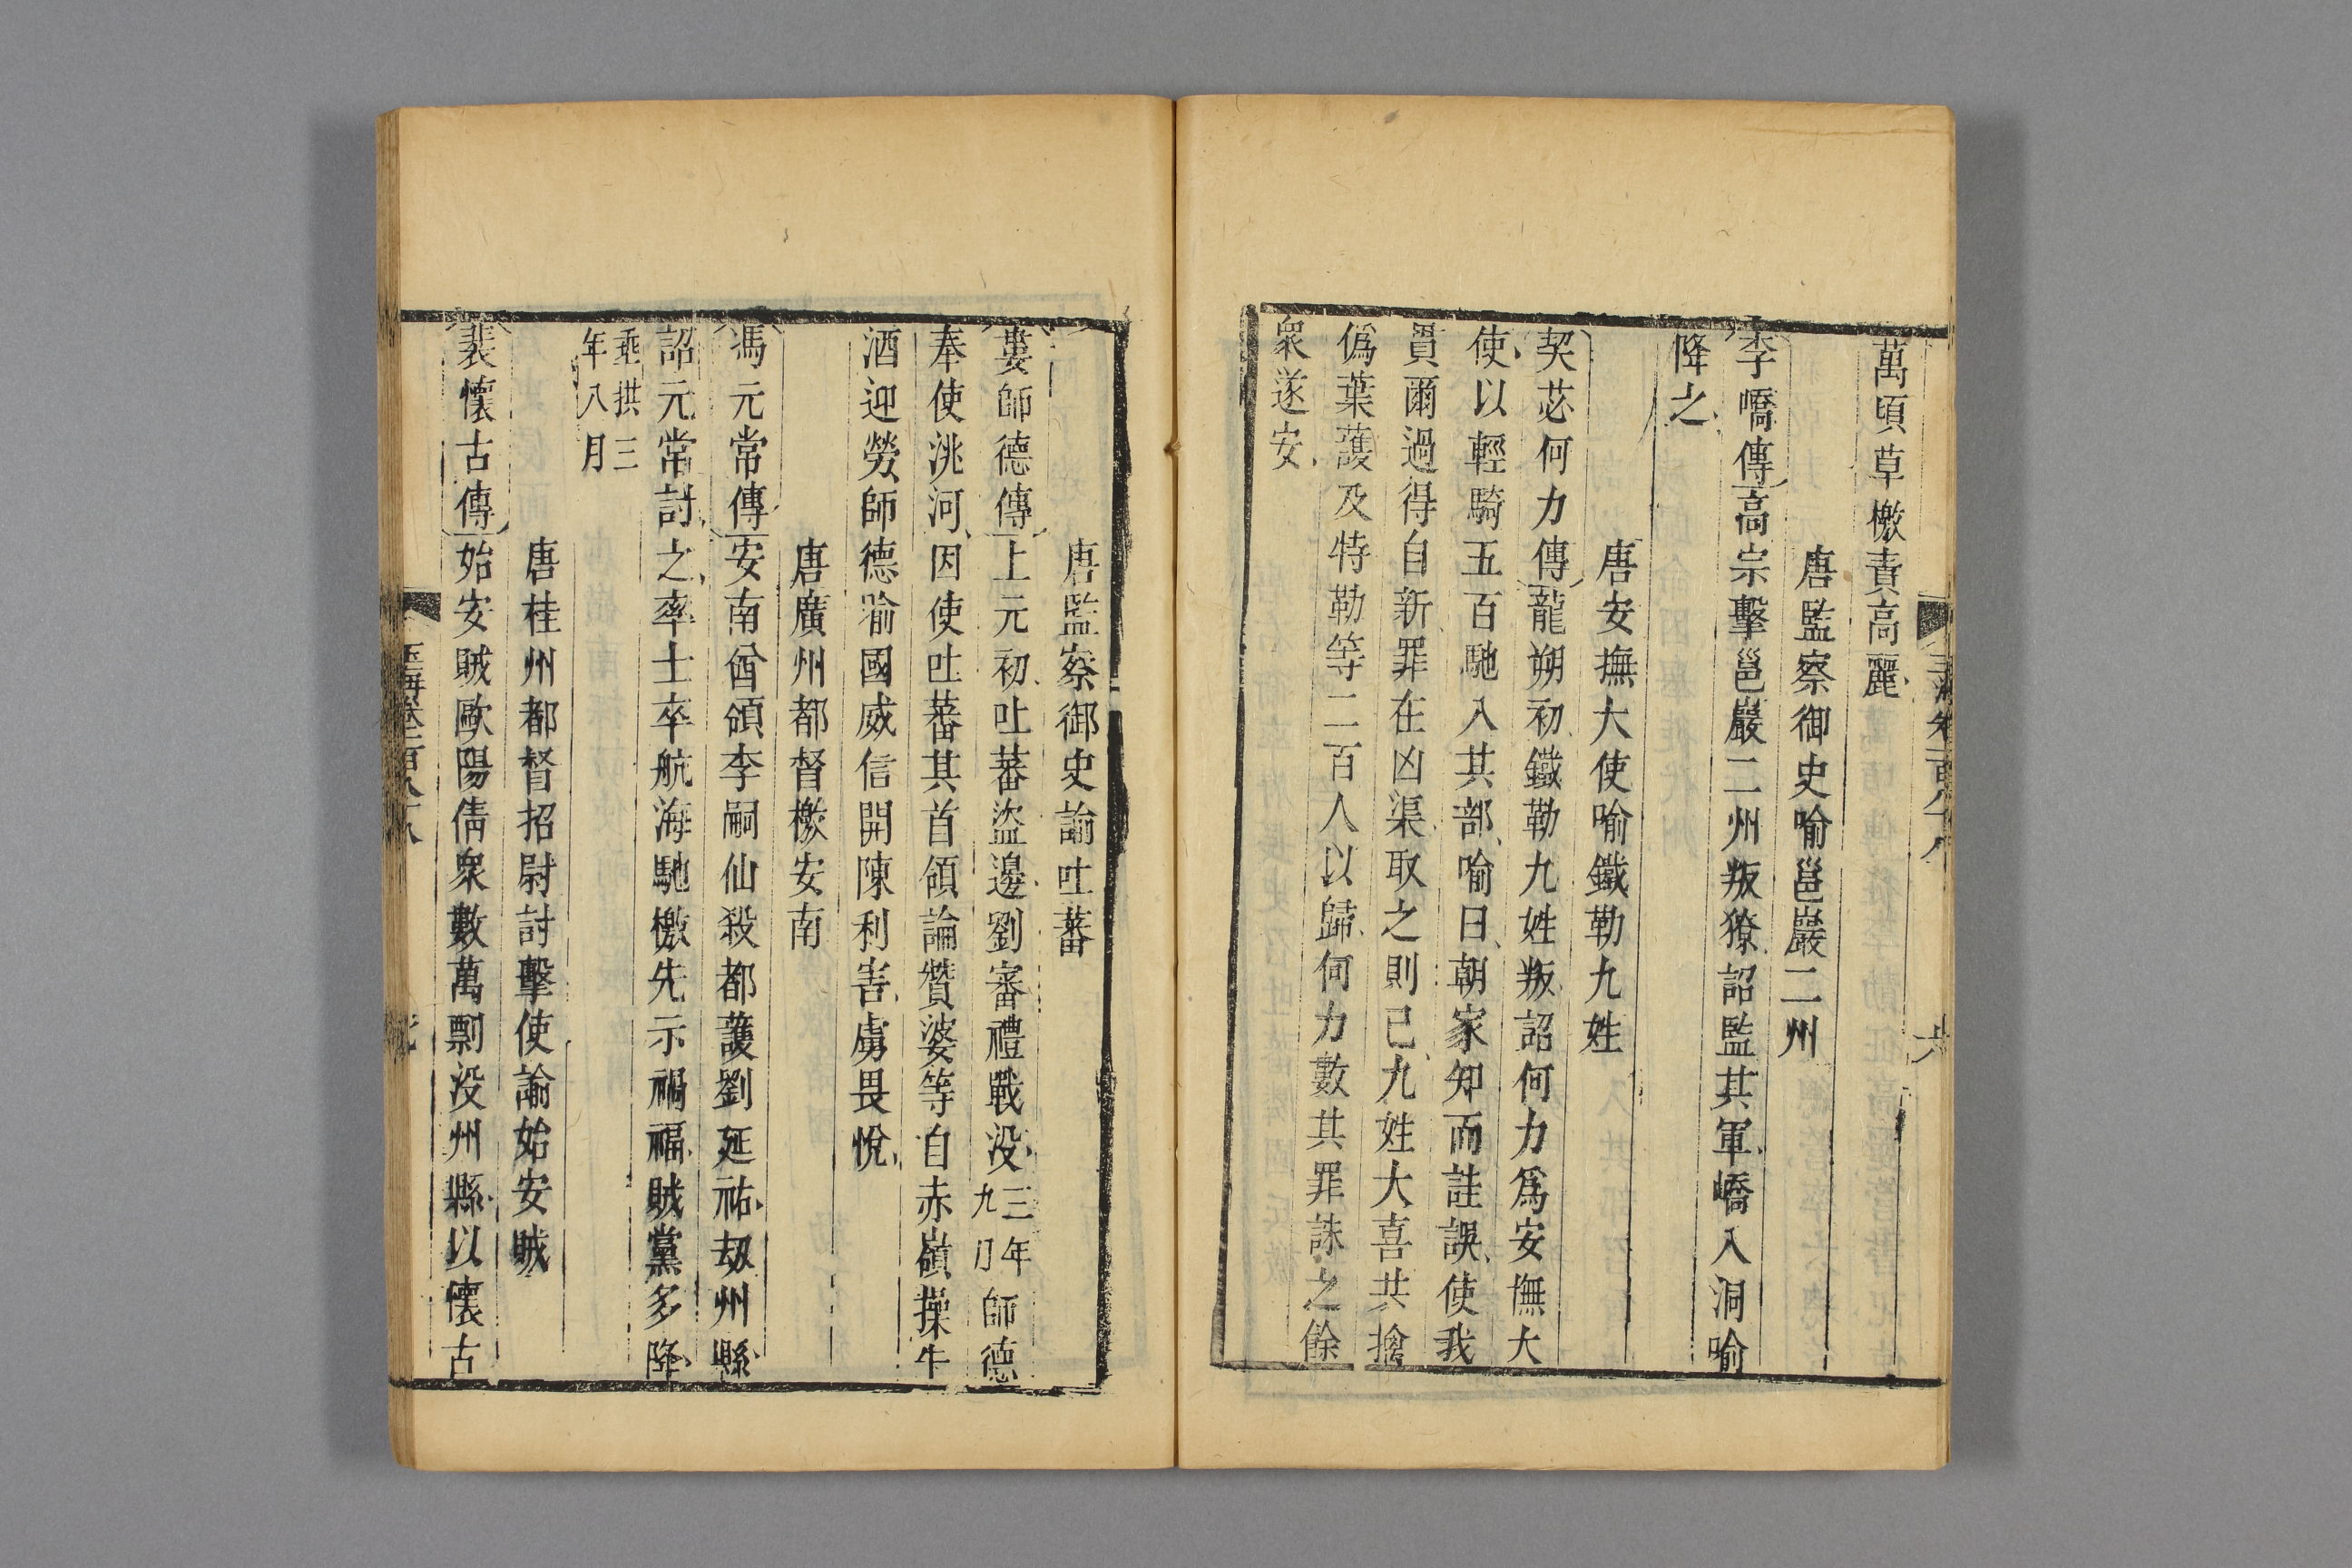 萬頃草檄責高麗
唐監察御史喻邕巖二州
李嶠傳高宗擊邕巖二州叛獠詔監其軍嶠入洞喻
降之
唐安撫大使喻鐵勒九姓
契苾何力傳龍朔初鐵勒九姓叛詔何力爲安撫大
使以輕騎五百馳入其部喻曰朝家知而詿誤使我
貰爾過得自新罪在凶渠取之則已九姓大喜共擒
僞葉護及特勒等二百人以歸何力數其罪誅之餘
衆遂安
唐監察御史諭吐蕃
婁師德傳上元初吐蕃盜邊劉審禮戰没三年九月師德
奉使洮河因使吐蕃其首領論贊婆等自赤嶺操牛
酒迎勞師德喻國威信開陳利害虜畏悅
唐廣州都督檄安南
馮元常傳安南酋領李嗣仙殺都護劉延祐刼州縣
詔元常討之率士卒航海馳檄先示禍福賊黨多降
垂拱三年八月
唐桂州都督招尉討擊使諭始安賊
裴懷古傳始安賊歐陽倩衆數萬剽没州縣以懷古
玉海卷一百八十八